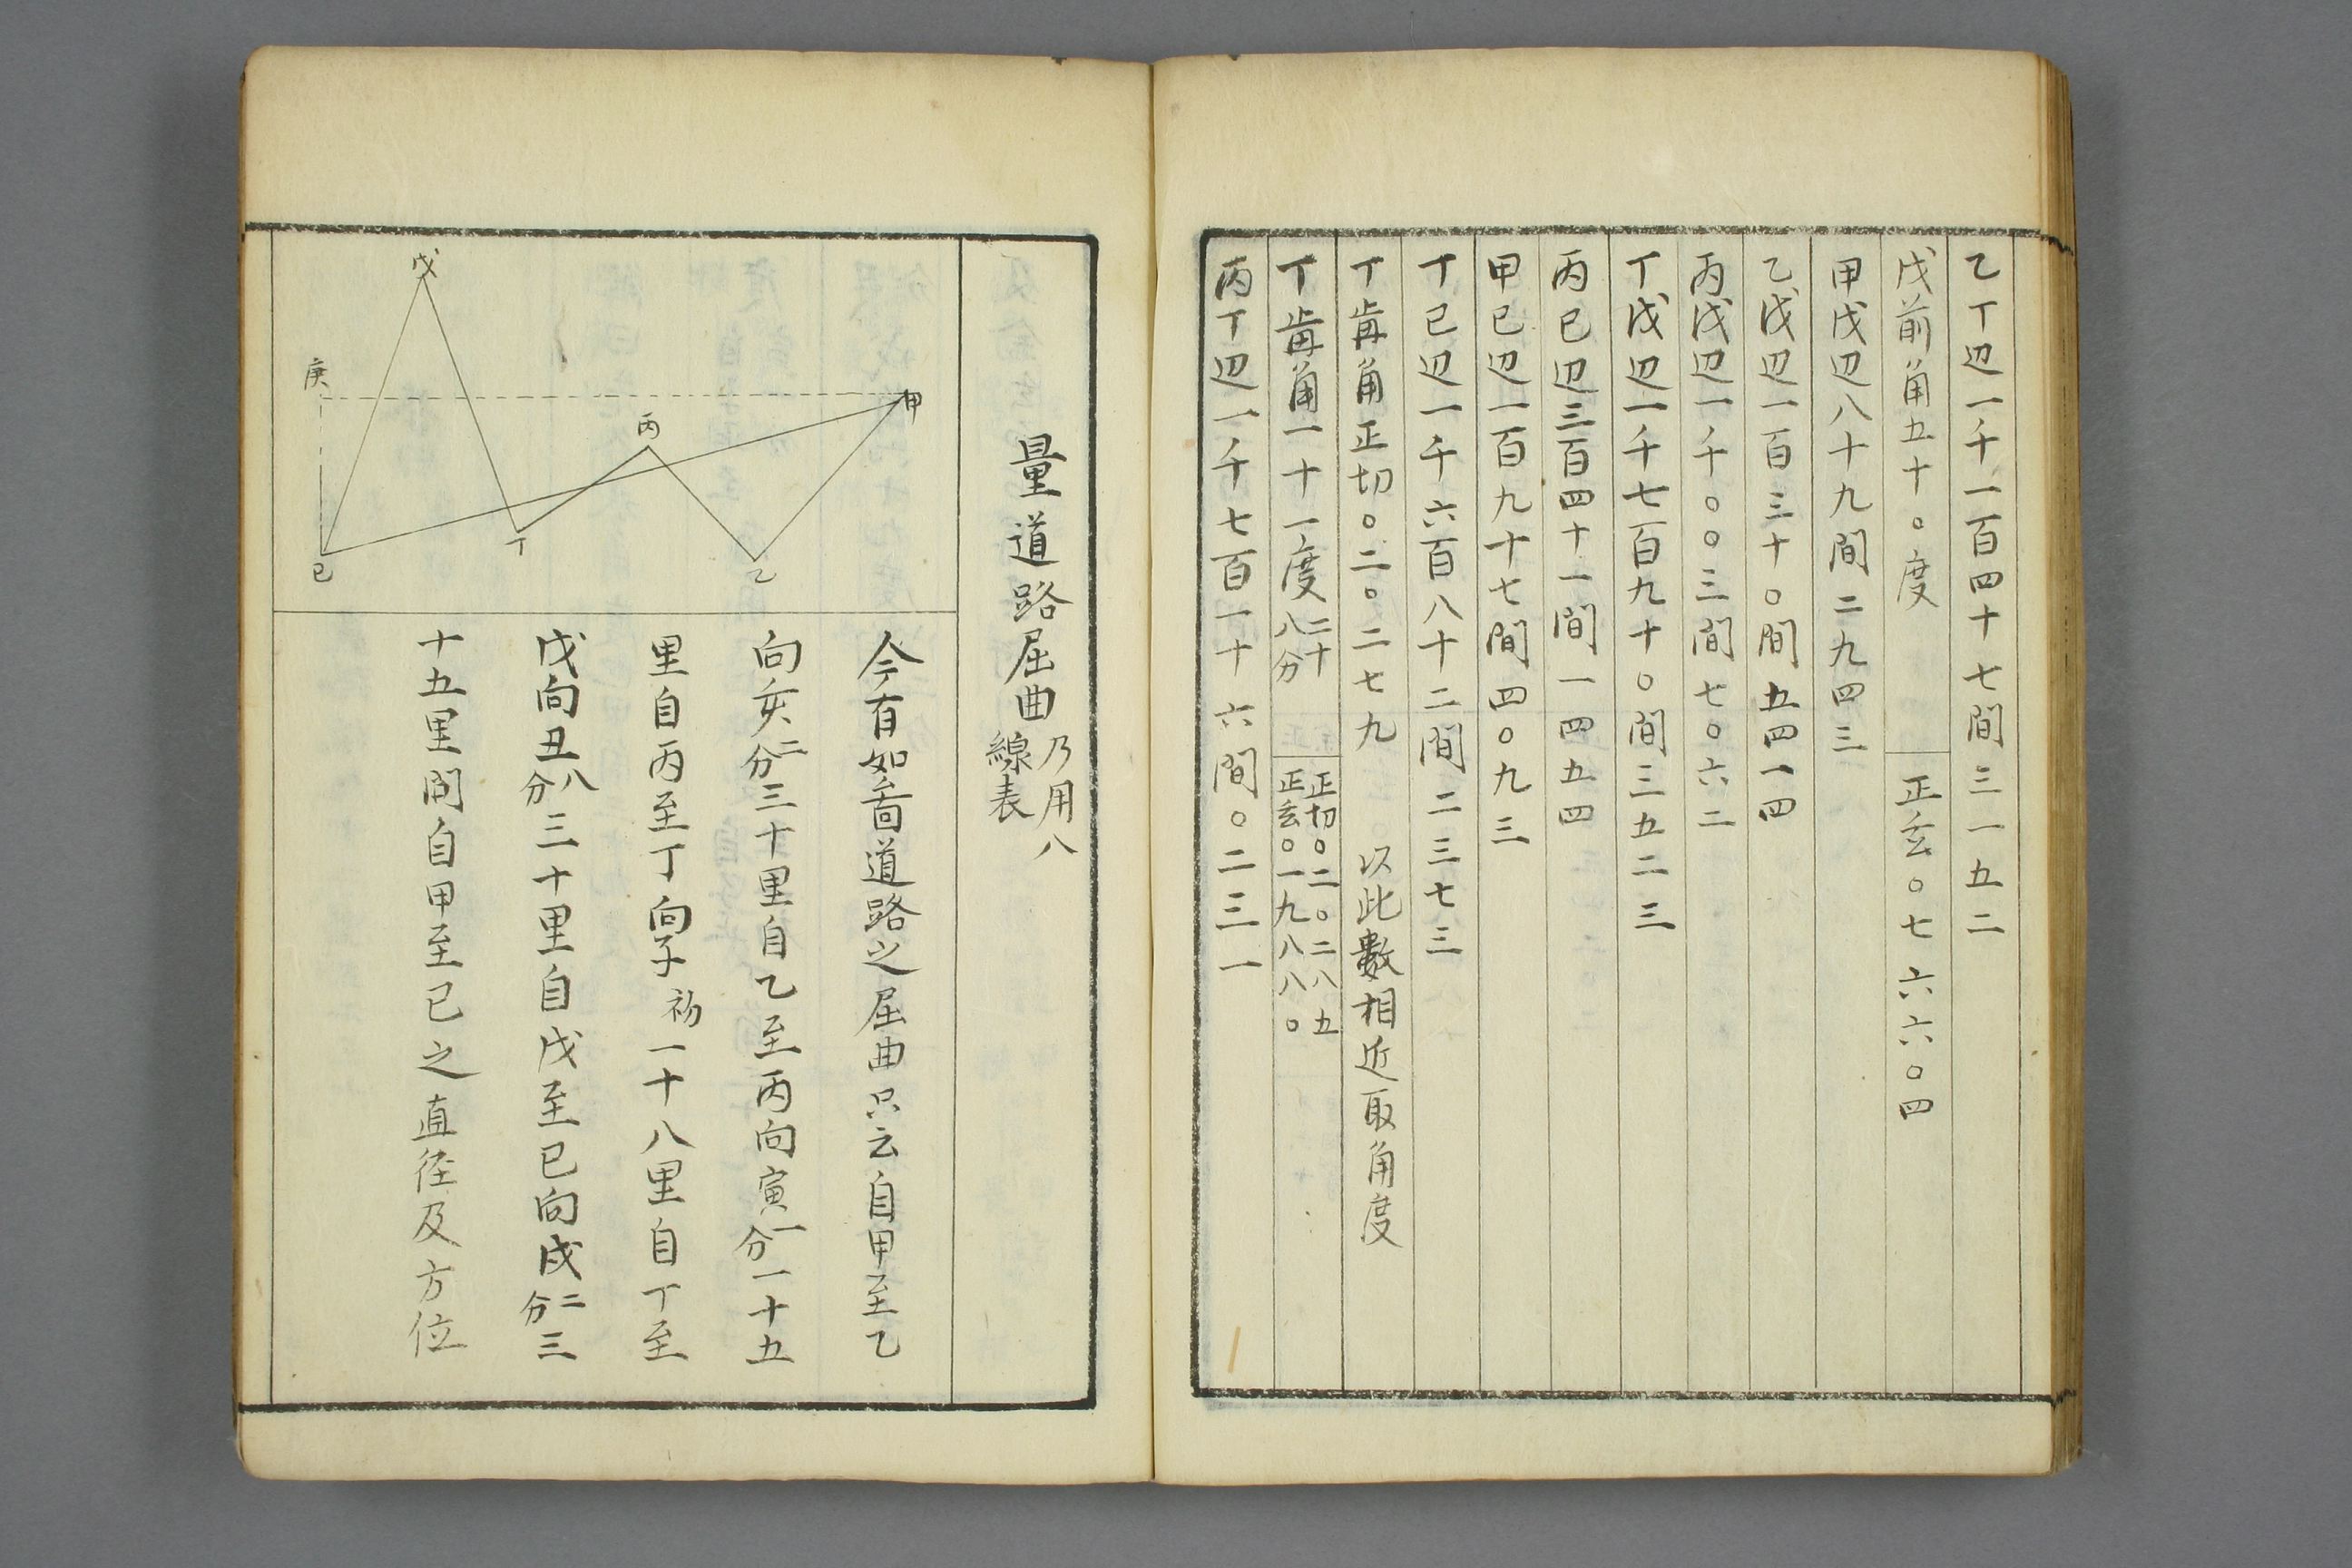 乙丁辺一千一百四十七間三一五二
戊前角五十〇度　正玄〇七六六〇四
甲戊辺八十九間二九四三
乙戊辺一百三十〇間五四一四
丙戊辺一千〇〇三間七〇六二
丁戊辺一千七百九十〇間三五二三
丙己辺三百四十一間一四五四
甲己辺一百九十七間四〇九三
丁己辺一千六百八十二間二三七三
丁背角正切〇二〇二七九　以此數相近取角度
丁背角一十一度二十八分　正切〇二〇二八五　正玄〇一九八八〇
丙丁辺一千七百一十六間〇二三一
量道路屈曲乃用八線表
戊
庚
甲
丙
丁
乙
己
今有如啚道路之屈曲只云自甲至乙
向亥二分三十里自乙至丙向寅一分一十五
里自丙至丁向子初一十八里自丁至
戊向丑八分三十里自戊至己向戌二分三
十五里問自甲至己之直径及方位